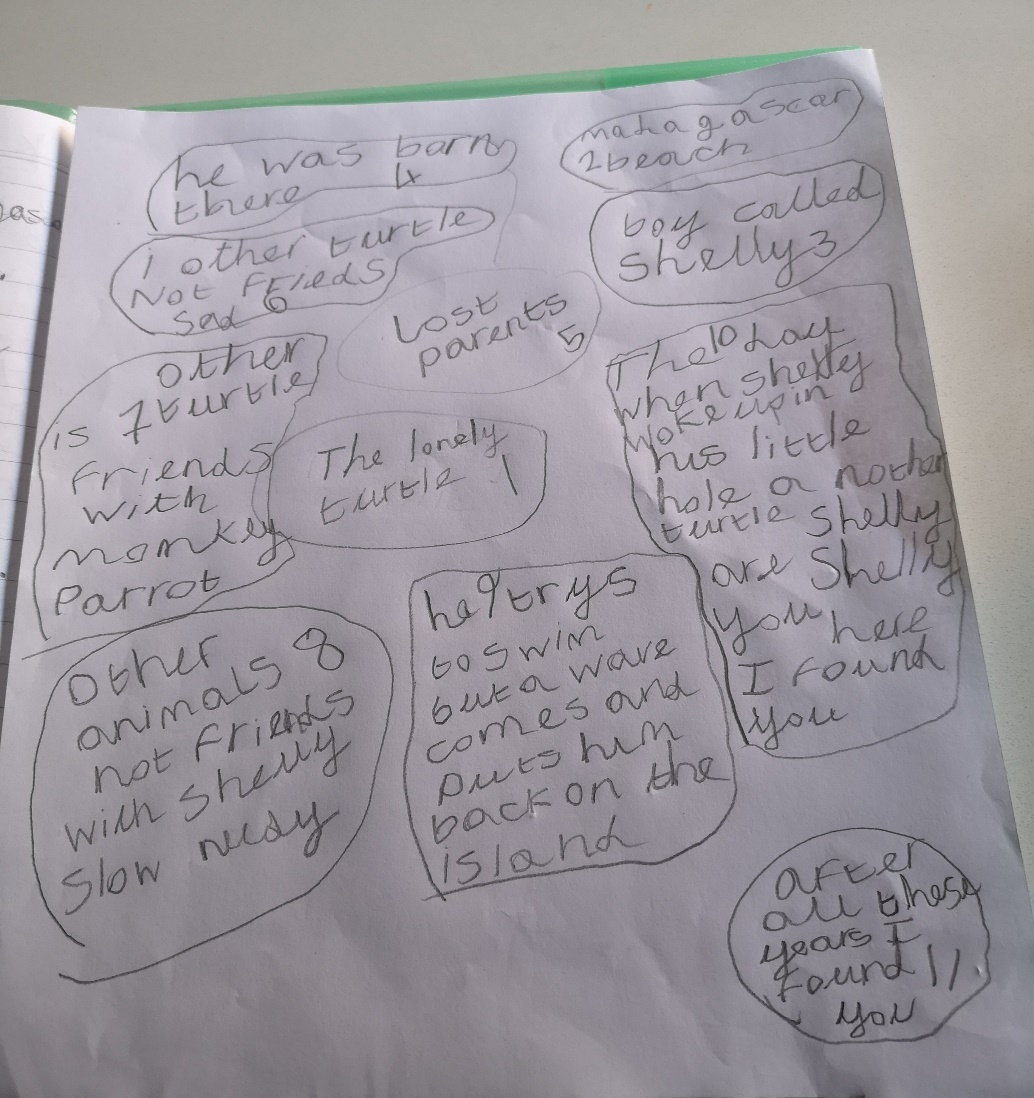 he was barn
there 4
madagascar
2 beach
i other turtle
Not Frieds
sad 6
boy called
shelly 3
Lost
parents
5
other
is 7 turtle
friends
with
monkey
Parrot
The lonely
turtle 1
The 10 day
when shelly
woke up in
his little
hole a nother
turtle shelly
are Shelly
you here
I found
you
Other
animals 8
not friends
with shelly
slow
he 9 trys
to swim
but a wave
comes and
puts him
back on the
island
after
all these
years I
found 11
you